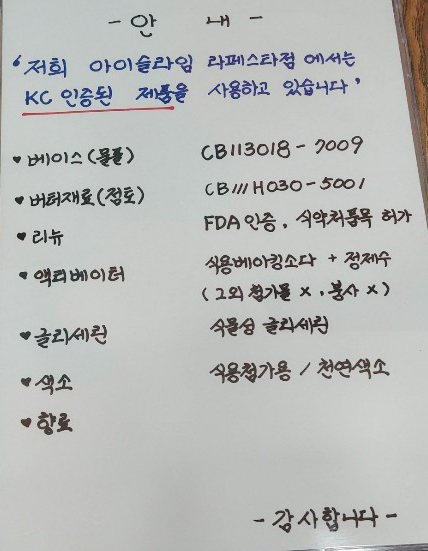 - 안 내 -
'저희 아이슬라임 라페스타점에서는
KC 인증된 제품을 사용하고 있습니다'
♥ 베이스(물풀) CB113018-7009
♥ 버터재료(점토) CB111H030-5001
♥ 리뉴 FDA 인증, 식약처품목 허가
♥ 액티베이터 식용베이킹소다 + 정제수
(그외 첨가물 x, 붕사 x)
♥ 글리세린 식물성 글리세린
♥ 색소 식용첨가용 / 천연색소
♥ 향료
- 감사합니다 -